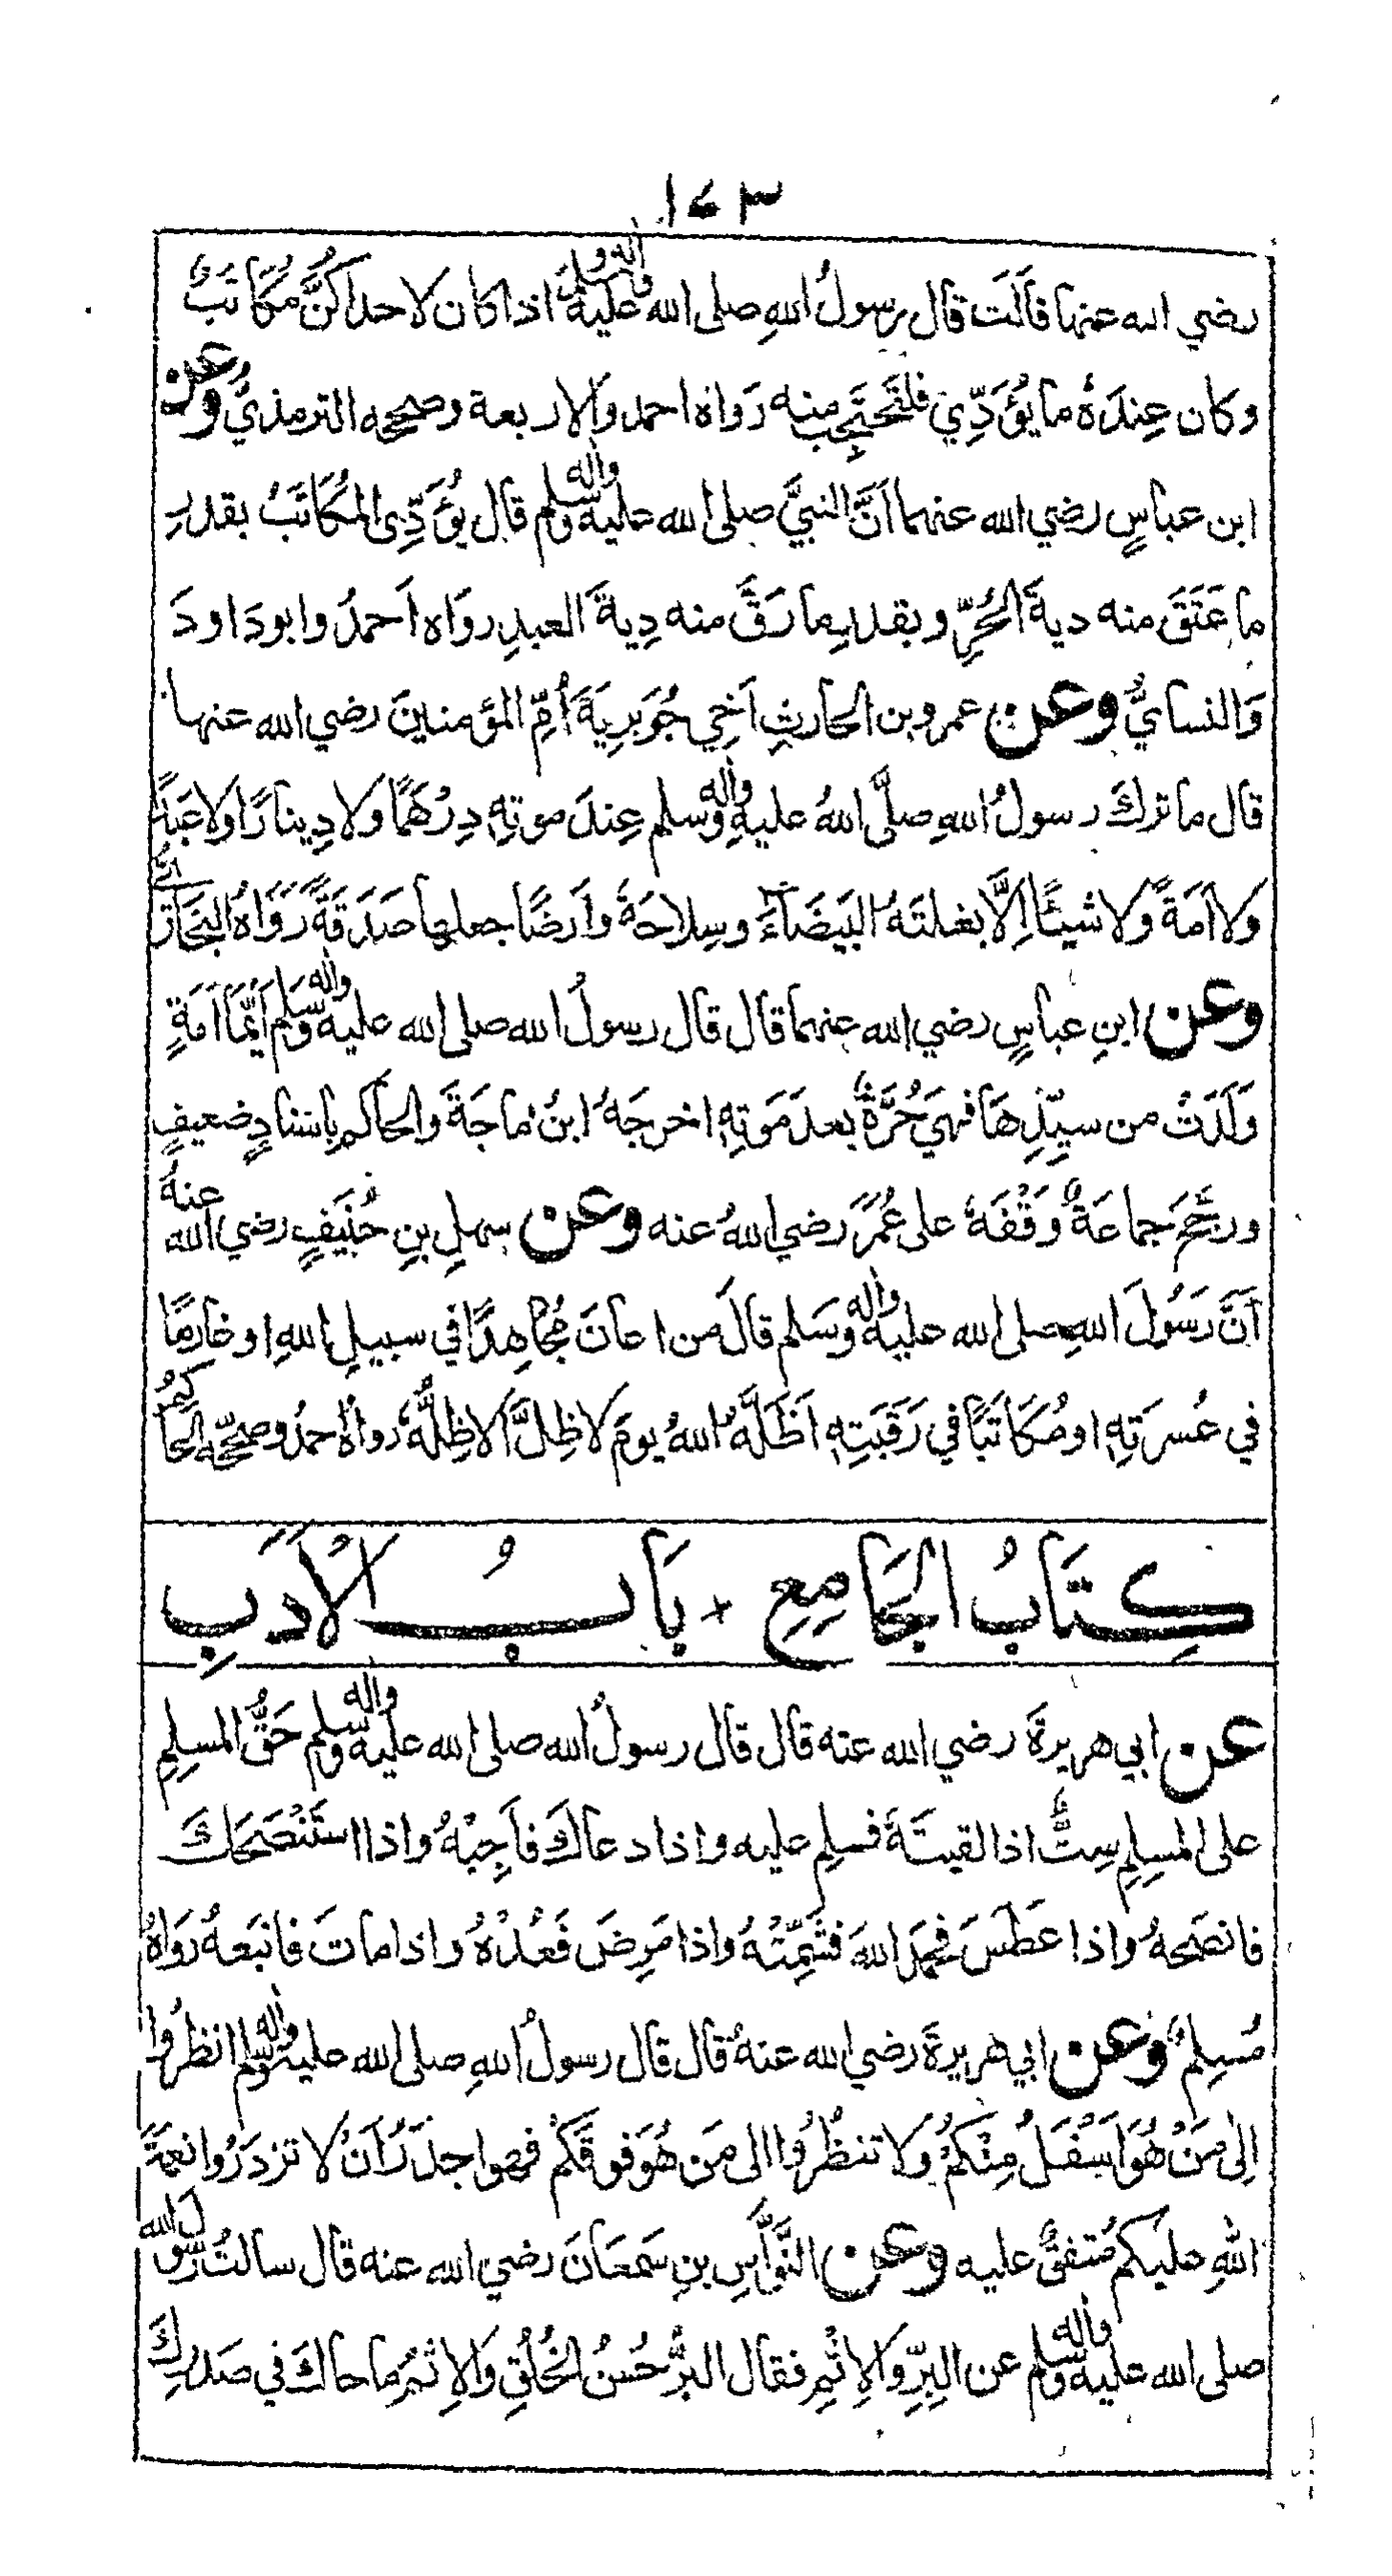 ١٤٣
رضي الله عنها قالَت قال رسولُ اللهِ صلى الله عليه واله وسلم اذا كان لاحداكُنَّ مُكَاتَبٌ
وكان عِندَهُ ما يُؤَدِّي فلتَحتَجِب منه رَوَاهُ احمد والاربعة وصححه الترمذيُّ وعن
ابن عباسٍ رضي الله عنهما اَنَّ النبيَّ صلى الله عليه واله وسلم قال يُؤَدِّى المُكَاتَبُ بقدرِ
ما عَتَقَ منه ديةَ الحُرِّ وبقدرِ ما رَقَّ منه دِيةَ العبدِ رواه اَحمدُ وابو داودَ
وَالنسايُّ وعن عمرو بن الحارثِ اَخِي جُوَيرِيَةَ اُمِّ المؤمنينَ رضي الله عنها
قال ما تركَ رسولُ اللهِ صلَّى اللهُ عليهِ واله وسلم عِندَ موتِهٖ دِرْهَمًا ولا دِينارًا ولا عَبدًا
ولا اَمَةً ولا شيئًا اِلَّا بغلتَهُ البَيضَآءَ وسِلاحَهُ واَرضًا جعلها صَدَقَةً رَوَاهُ البُخَارِيُّ
وعن ابنِ عباسٍ رضي الله عنهما قال قال رسولُ الله صلى الله عليه واله وسَلم اَيُّمَا اَمَةٍ
وَلَدَتْ من سيِّدِهَا فهيَ حُرَّةٌ بعدَ مَوتِهٖ اخرجَهُ ابنُ ماجَةَ والحاكم بِاسنادٍ ضعيفٍ
ورجَّحَ جماعَةٌ وَقْفَهُ على عُمَرَ رضي اللهُ عنه وعن سهلِ بنِ حُنَيفٍ رضي الله عنهُ
اَنَّ رَسُولَ اللهِ صلى الله عليه واله وسَلم قالَ من اعانَ مُجَاهِدًا في سبيلِ اللهِ او غارِمًا
في عُسرَتِهٖ او مُكَاتَبًا في رَقَبَتِهٖ اَظَلَّهُ اللهُ يومَ لا ظِلَّ الا ظِلُّهُ رواهُ احمدُ وصححّه الحاكمُ
كِتَابُ الجَامِعِ + بَابُ الْاَدَبِ
عن ابي هريرةَ رضي الله عنه قال قال رسولُ الله صلى الله عليه واله وسلم حَقُّ المسلِمِ
على المسلِمِ سِتٌّ اذا لقيتَهُ فسلِم عليه واذا دعاكَ فاَجِبْهُ واذا استَنْصَحَكَ
فانصَحهُ واذا عَطَسَ فحَمِدَ اللهَ فشَمِّتْهُ واذا مَرِضَ فَعُدْهُ واذا ماتَ فاتبَعهُ رَوَاهُ
مُسلِمٌ وعن ابي هريرةَ رضي الله عنهُ قال قال رسولُ اللهِ صلى الله عليه واله وسلم انظرُوا
اِلى مَنْ هُوَ اَسْفَلُ مِنْكُمْ ولا تنظُرُوا الى مَن هُوَ فوقَكُم فهو اجدَرُ اَنْ لا تزدَرُوا نعمَةَ
اللهِ عليكم مُتفقٌ عليه وعن النَّوَّاسِ بنِ سَمعَانَ رضي الله عنه قال سالتُ رَسُولَ الله
صلى الله عليه واله وسلم عن البِرِّ وَالاِثْمِ فقال البِرُّ حُسنُ الخُلُقِ وَالاِثمُ ما حاكَ في صَدرِكَ